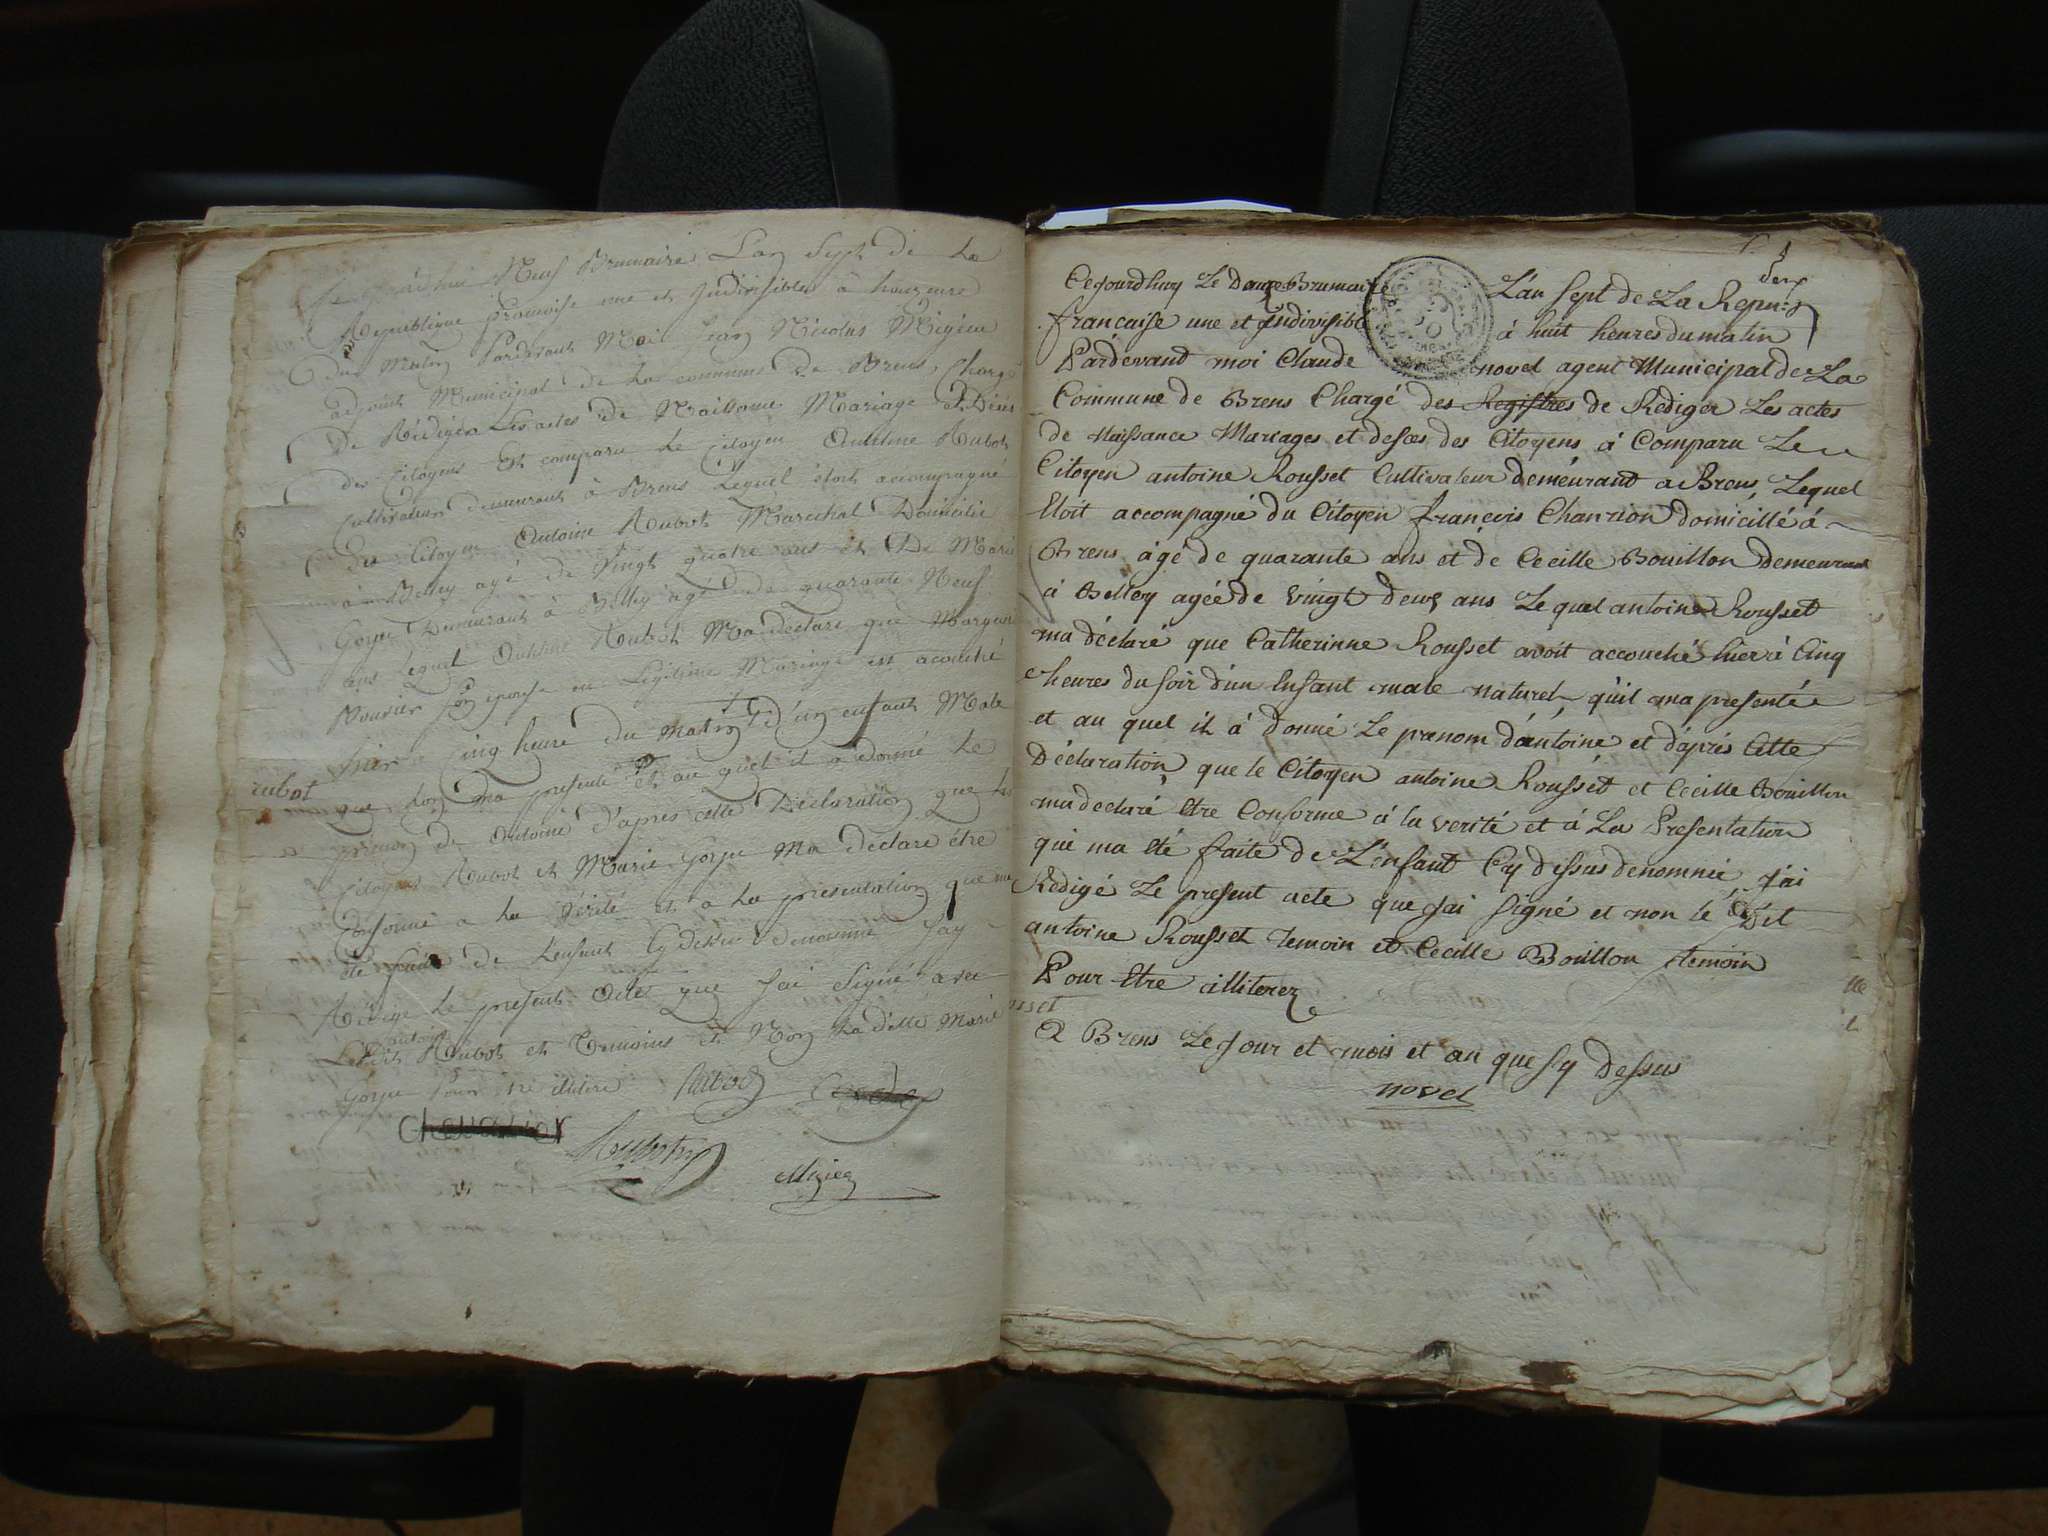 Neuf Brumaire L'an Sept de la
Republique francoise une et Indivisible à honzeure
du Matin Pardevant Moi Jean Nicolas Migieu
adjoint Municipal de la commune de Brens, Chargé
de Rédiger Les actes de Naissance Mariage et Décés
des Citoyens Est comparu le Citoyen Rubot
Cultivateur demeurant à Brens Lequel étoit accompagné
du Citoyen Antoine Rubot Marechal Domicilié
à Belley agé de vingt quatre ans et De Marie
Gorju Demeurant à Belley agé de quarante Neuf
ans Lequel Rubot Ma déclaré que
Son Epouse en Légitime Mariage est acouché
hier a Cinq heure du Matin d'un enfant Male
rubot
que Lon Ma presenté Et au quel il a donné Le
prenon de Antoine D'apres cette Déclaration que Les
Citoyens Rubot et Marie Gorju Ma Declaré étre
Conforme a La Vérité et a La présentation que ma
été faite de Lenfant Cy Dessus dénommé Jay
Rédigé Le present Acte que Jai Signé avec
antoine
Ledit Rubot et Temoins et Non La ditte Marie
Gorju Pour être illitéré Rubod
Chevalier
Roubot Migieu
deux
Cejourdhuy Le Douze Brumaire L'an Sept de La Repu:
francaise une et Indivisible à huit heures du matin
Pardevand moi Claude novel agent Municipal de La
Commune de Brens Chargé des Registres de Rediger Les actes
de Naissance Mariages et desces des Citoyens à Comparu Le
Citoyen antoine Rousset Cultivateur deméurand a Brens, Lequel
Etoit accompagné du Citoyen françois Chanrion domicillé á
Brens agé de quarante ans et de Cecille Bouillon demeurant
á Belley agéé de Vingt deux ans Le quel antoine Rousset
ma déclaré que Catherinne Rousset avoit accouché hier à Cinq
heures du soir d'un Enfant male naturel qu'il ma presentée
et au quel il à donné Le prenom d'antoine et d'aprés Cette
Déclaration que le Citoyen antoine Rousset et Cecille Bouillon
ma declaré Etre Conforme á la verité et á La Presentation
qui ma Eté faite de L'enfant Cy dessus denommé J'ai
Redigé Le present acte que Jai signé et non le Dit
antoine Rousset Temoin et Cecille Bouillon temoin
Pour Etre illiterez
usset
A Brens Le Jour et mois et an que sy dessus
novel